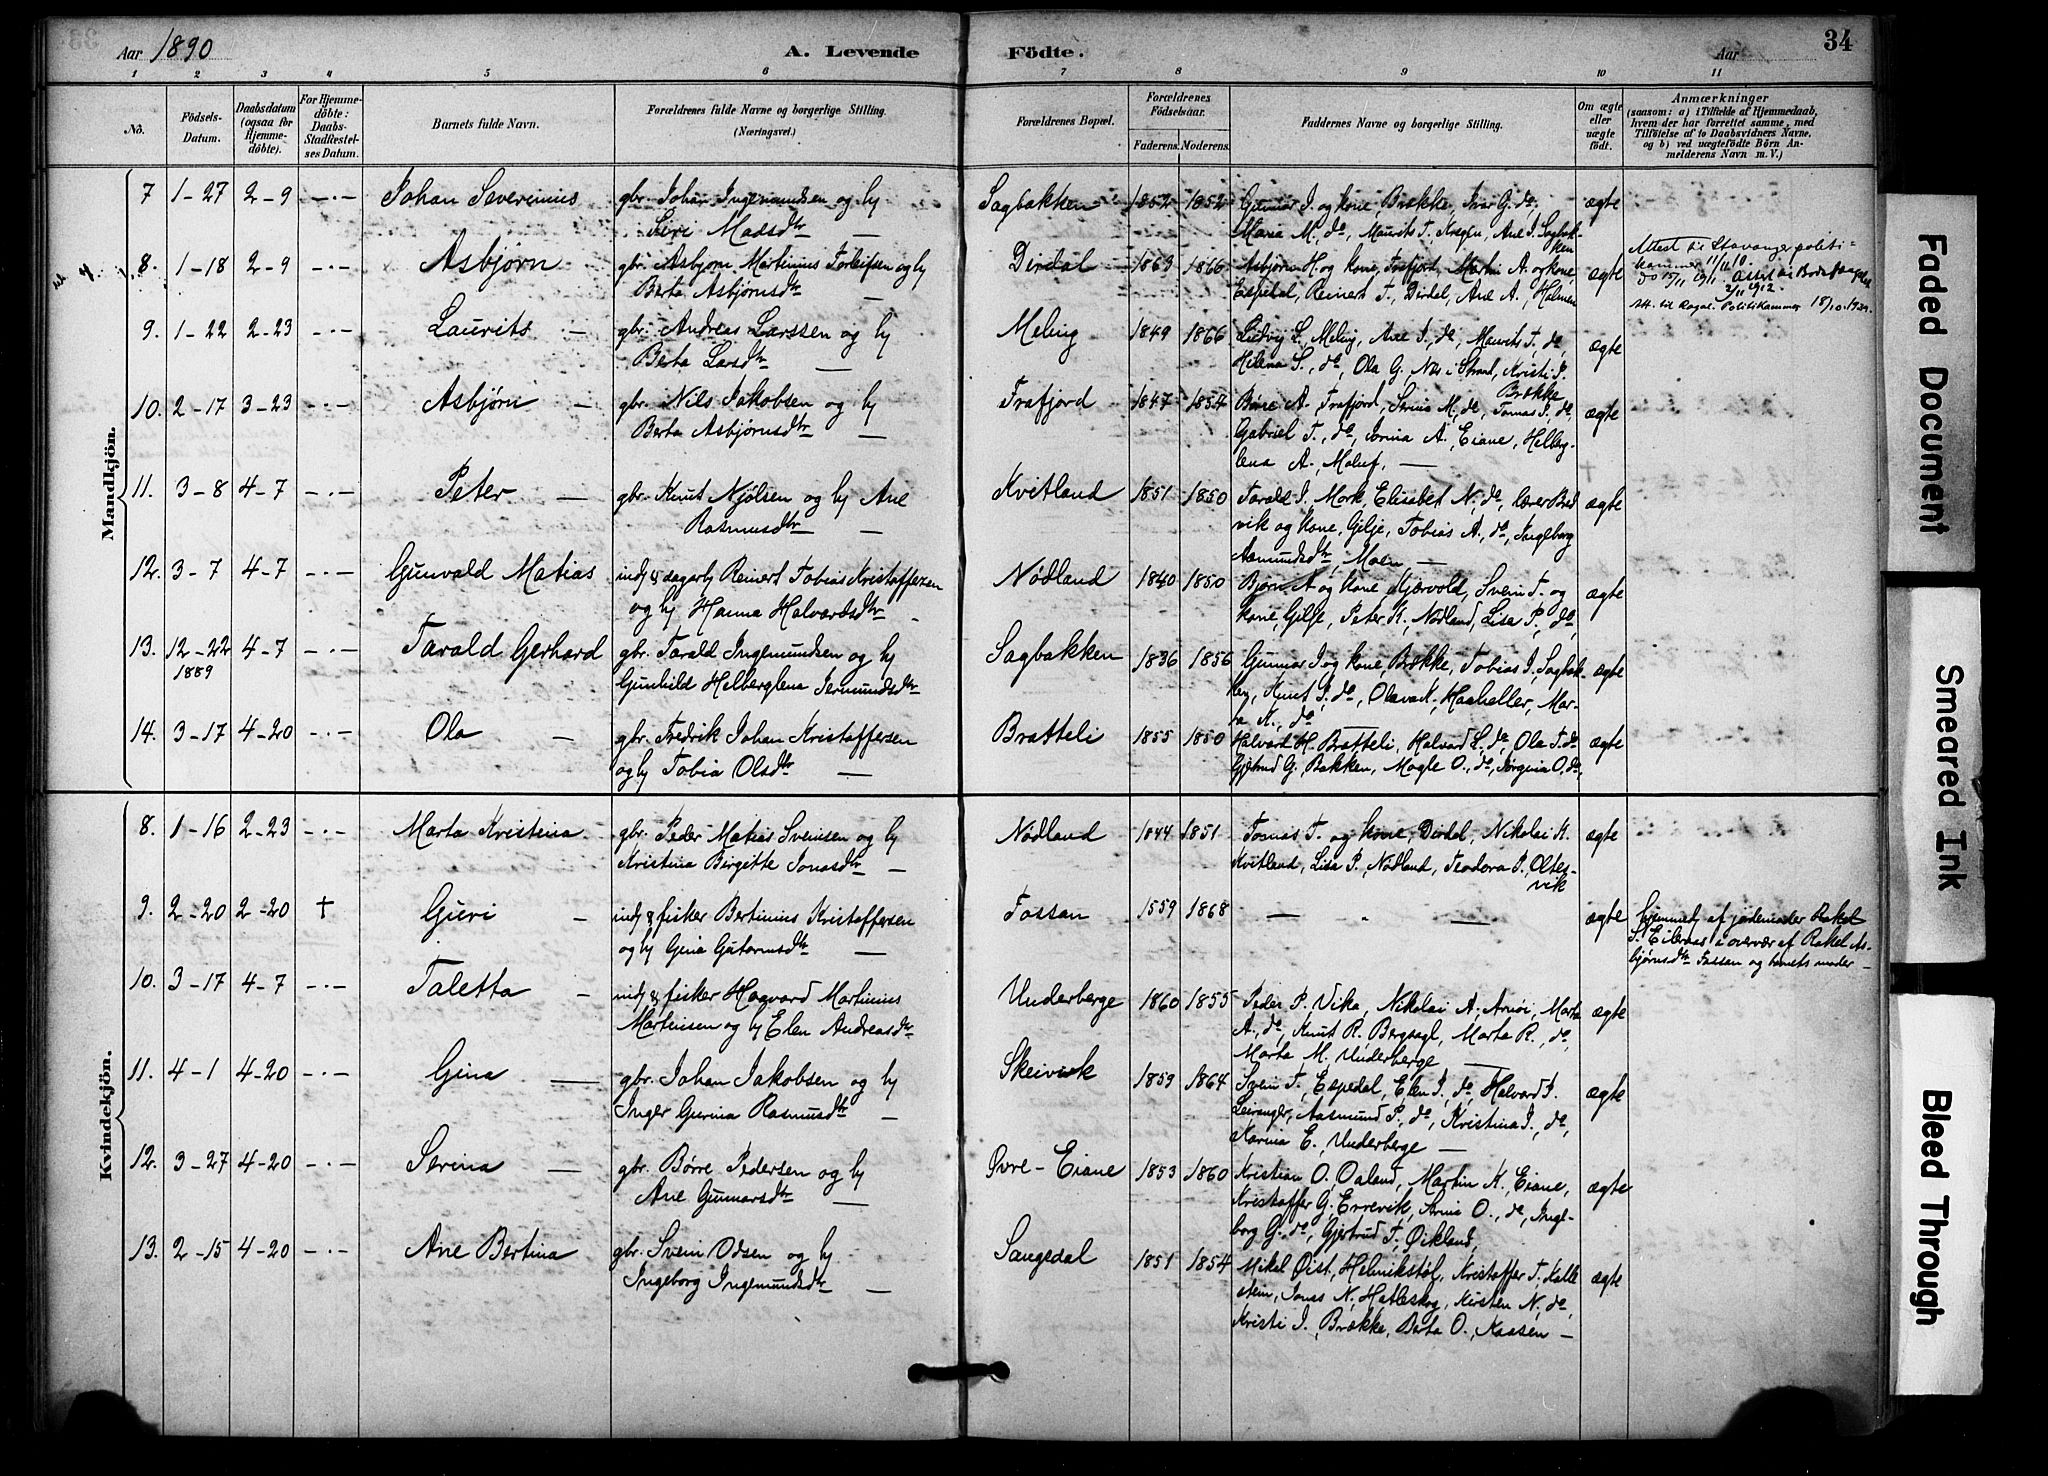 Aar 1890
A. Levende Födte.
Aar
34
1 2 3 4 5 6 7 8 9 10 11
No.
Födsels-Datum.
Daabsdatum (ogsaa for Hjemme-döbte).
For Hjemme-döbte: Daabs-Stadfæstel-ses Datum.
Barnets fulde Navn.
Forældrenes fulde Navne og borgerlige Stilling. (Næringsvei.)
Forældrenes Bopæl.
Forældrenes Födselsaar.
Faderens. Moderens.
Faddernes Navne og borgerlige Stilling.
Om ægte eller uægte födt.
Anmærkninger
(saasom: a) i Tilfælde af Hjemmedaab, hvem der har forrettet samme, med Tilföielse af to Daabsvidners Navne, og b) ved uægtefödte Börn An-melderens Navn m. V.)
Mandkjön.
7 1-27 2-9 -.- Johan Severinius gbr. Johan Ingemundsen og hj Siri Madsdtr — Sagbakken 1852 1852 Gunnar I. og kone, Brække, Ivar G. do, Maria M., do, Maurits T., Kragen, Ane I. Sagbakken ægte
8. 1-18 2-9 -.- Asbjørn gbr. Asbjørn Martinius Torleifsen og hj Berta Asbjørnsdtr — Dirdal 1863 1866 Asbjørn H. og kone, Frafjord, Martin A. og kone, Espedal, Reinert T., Dirdal, Ane A., Holmen ægte Attest til Stavanger politi-kammer 11/11 10.
do 15/11 1911 Attest til
2/11 1912.
Att. til Rogal. Politikammer 18/10 1934.
9. 1-22 2-23 -.- Laurits — gbr. Andreas Larssen og hj Berta Larsdtr — Meling 1849 1866 Ludvig L., Meling, Ane I., do, Maurits T., do, Helena S., do, Ola G. Nes i Strand, Kristi I. Brække ægte
10. 2-17 3-23 -.- Asbjørn — gbr. Nils Jakobsen og hj Berta Asbjørnsdtr — Frafjord 1847 1854 Børe A. Frafjord, Serina M., do, Tomas I., do, Gabriel T., do, Jorina A., Eiane, Helberg-lena A., Molaug. — ægte
11. 3-8 4-7 -.- Peter — gbr. Knut Njølsen og hj Ane Rasmusdtr — Kvitland 1851 1850 Tarald I. Mork, Elisabet N. do, lærer Bred vik og kone, Gilje, Tobias A., do, Ingeborg Aamundsdtr, Moen — ægte
12. 3-7 4-7 -.- Gunvald Matias indj & dagarbj Reinert Tobias Kristoffersen og hj Hanna Halvardsdtr — Nødland 1840 1850 Bjørn A og kone, Kjærvold, Svein T. og kone, Gilje, Peter K., Nødland, Lisa P., do, ægte
13. 12-22 1889 4-7 -.- Tarald Gerhard gbr. Tarald Ingemundsen og hj Gunhild Helberglena Jermundsdtr Sagbakken 1836 1856 Gunnar I og kone, Brække, Tobias I., Sagbak-ken, Knut I., do, Olava K., Haaheller, Mar-ta K., do ægte
14. 3-17 4-20 -.- Ola — gbr. Fredrik Johan Kristoffersen og hj Tobia Olsdtr — Bratteli 1855 1850 Halvard H. Bratteli, Halvard L., do, Ola T. do Gjertrud G., Bakken, Magle O., do, Jørgina O. do, ægte
Kvindekjön.
8. 1-16 2-23 -.- Marta Kristina gbr. Peder Matias Sveinsen og hj Kristina Birgitte Jonasdtr — Nødland 1844 1851 Tomas T. og kone, Dirdal, Nikolai K. Kvitland, Lisa P., Nødland, Teodora P., Oltes-vik ægte
9. 2-20 2-20 † Guri — indj & fisker Bertinius Kristoffersen og hj Gina Gutormsdtr — Fossan 1559 1868 — " — ægte hjemmedj af jordemoder Rakel S. Eiternes i overvær af Rakel As-bjørnsdtr Fossan og barnets moder —
10. 3-17 4-7 -.- Taletta — indj & fisker Haavard Martinius Martinsen og hj Elen Andreasdtr Underberge 1860 1855 Peder P., Vika, Nikolai A., Arnøi, Marta A., do, Knut R. Bergsagl, Marta R., do, Marta M. Underberge — ægte
11. 4-1 4-20 -.- Gina — gbr. Johan Jakobsen og hj Inger Gurina Rasmusdtr — Skeivik 1859 1864 Svein T., Espedal, Elen I., do, Halvard I. Leiranger, Aasmund P., do, Kristina I., do, Karina E., Underberge — ægte
12. 3-27 4-20 -.- Serina — gbr. Børre Pedersen og hj Ane Gunnarsdtr — Øvre-Eiane 1853 1860 Kristian O., Oaland, Martin K., Eiane, Kristoffer G., Errevik, Serina O., do, Inge-borg G., do, Gjertrud T., Øikland, ægte
13. 2-15 4-20 -.- Ane Bertina gbr. Svein Odsen og hj Ingeborg Ingemundsdtr — Sangedal 1851 1854 Mikal Øist., Helmikstøl, Kristoffer T. Kalle stein, Jonas N., Hatleskog, Kirsten N., do, Kristi I., Brække, Berta O., Kaasen — ægte
Faded Document
Smeared Ink
Bleed Through